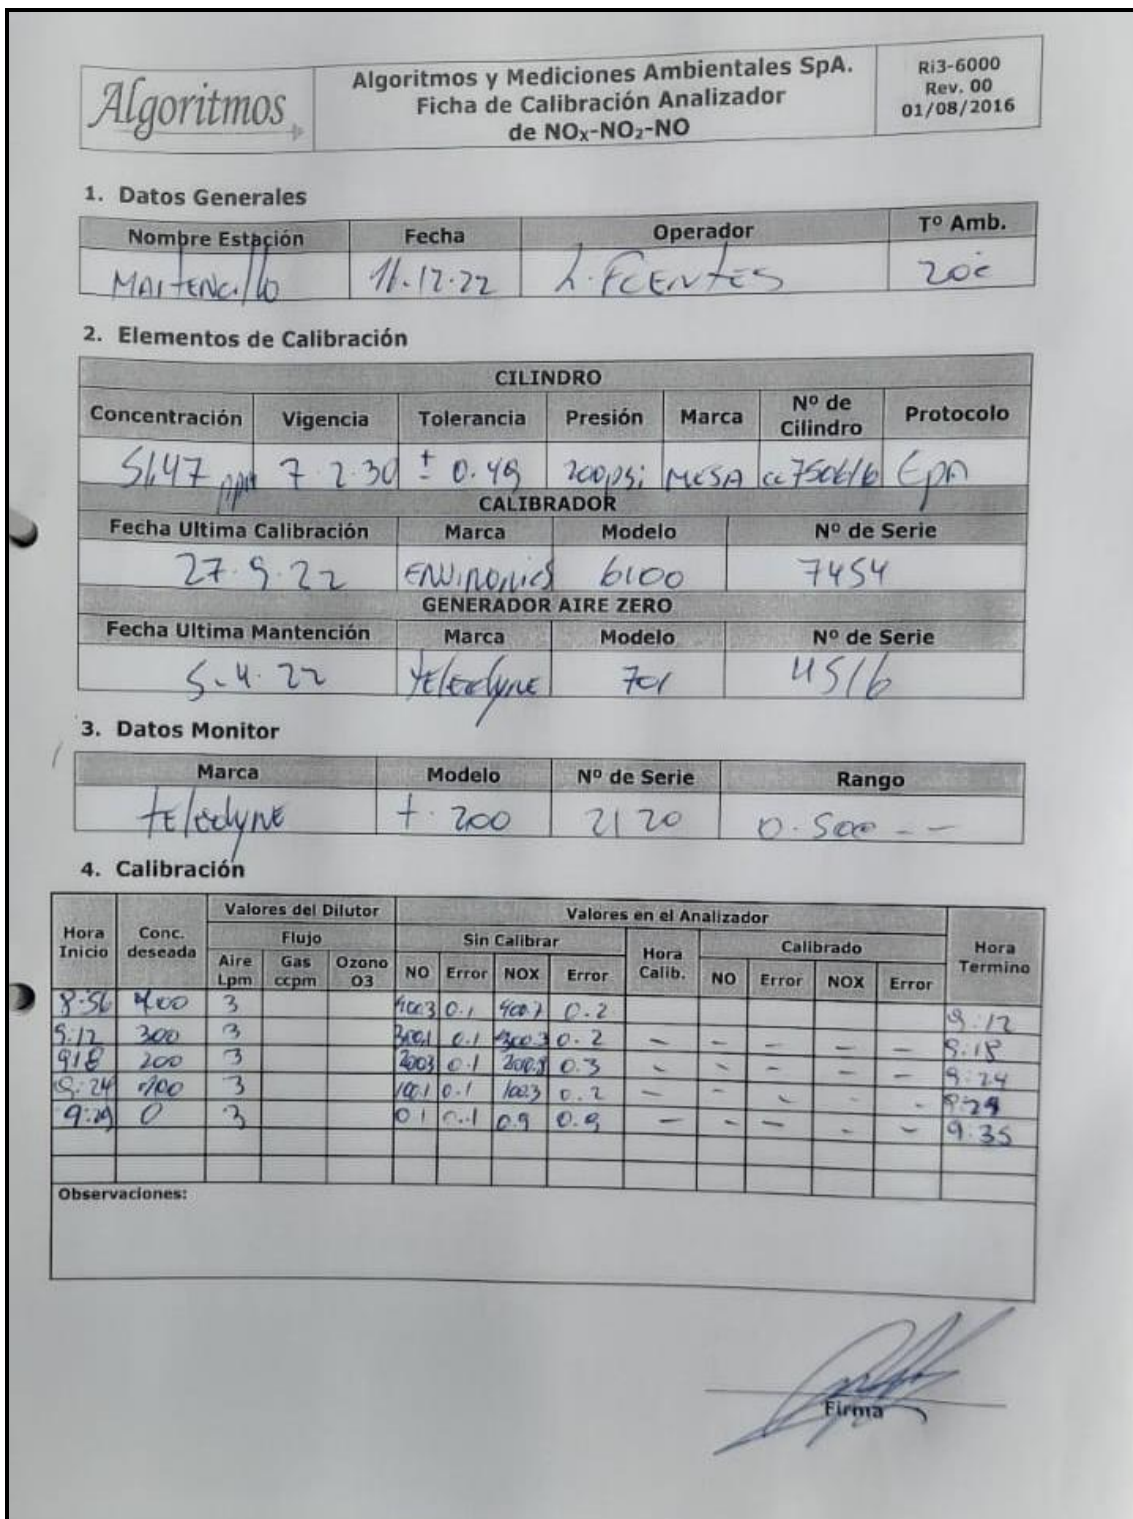 Algoritmos
Algoritmos y Mediciones Ambientales SpA.
Ficha de Calibración Analizador
de NOX-NO2-NO
Ri3-6000
Rev. 00
01/08/2016
1. Datos Generales
Nombre Estación Fecha Operador Tº Amb.
MAITENCillo 11.12.22 L. FUENTES 20ºc
2. Elementos de Calibración
CILINDRO
Concentración Vigencia Tolerancia Presión Marca Nº de Cilindro Protocolo
51,47 ppm 7.2.30 ± 0.49 200psi MESA EPA
CALIBRADOR
Fecha Ultima Calibración Marca Modelo Nº de Serie
27.9.22 ENVIRONICS 6100 7454
GENERADOR AIRE ZERO
Fecha Ultima Mantención Marca Modelo Nº de Serie
5-4.22 tEledyNE 701 4516
3. Datos Monitor
Marca Modelo Nº de Serie Rango
tEledyNE t.200 2120 0.500 --
4. Calibración
Hora Inicio Conc. deseada Valores del Dilutor Valores en el Analizador Hora Termino
Flujo Sin Calibrar Hora Calib. Calibrado
Aire Lpm Gas ccpm Ozono O3 NO Error NOX Error NO Error NOX Error
8:56 400 3 400.3 0.1 400.7 0.2 9:12
9:12 300 3 300.1 0.1 300.3 0.2 - - - - - 9:18
9:18 200 3 200.3 0.1 0.3 - - - - - 9:24
9:24 100 3 100.1 0.1 100.3 0.2 - - - - - 9:29
9:29 0 3 0.1 0.1 0.9 0.9 - - - - - 9:35
Observaciones:
Firma